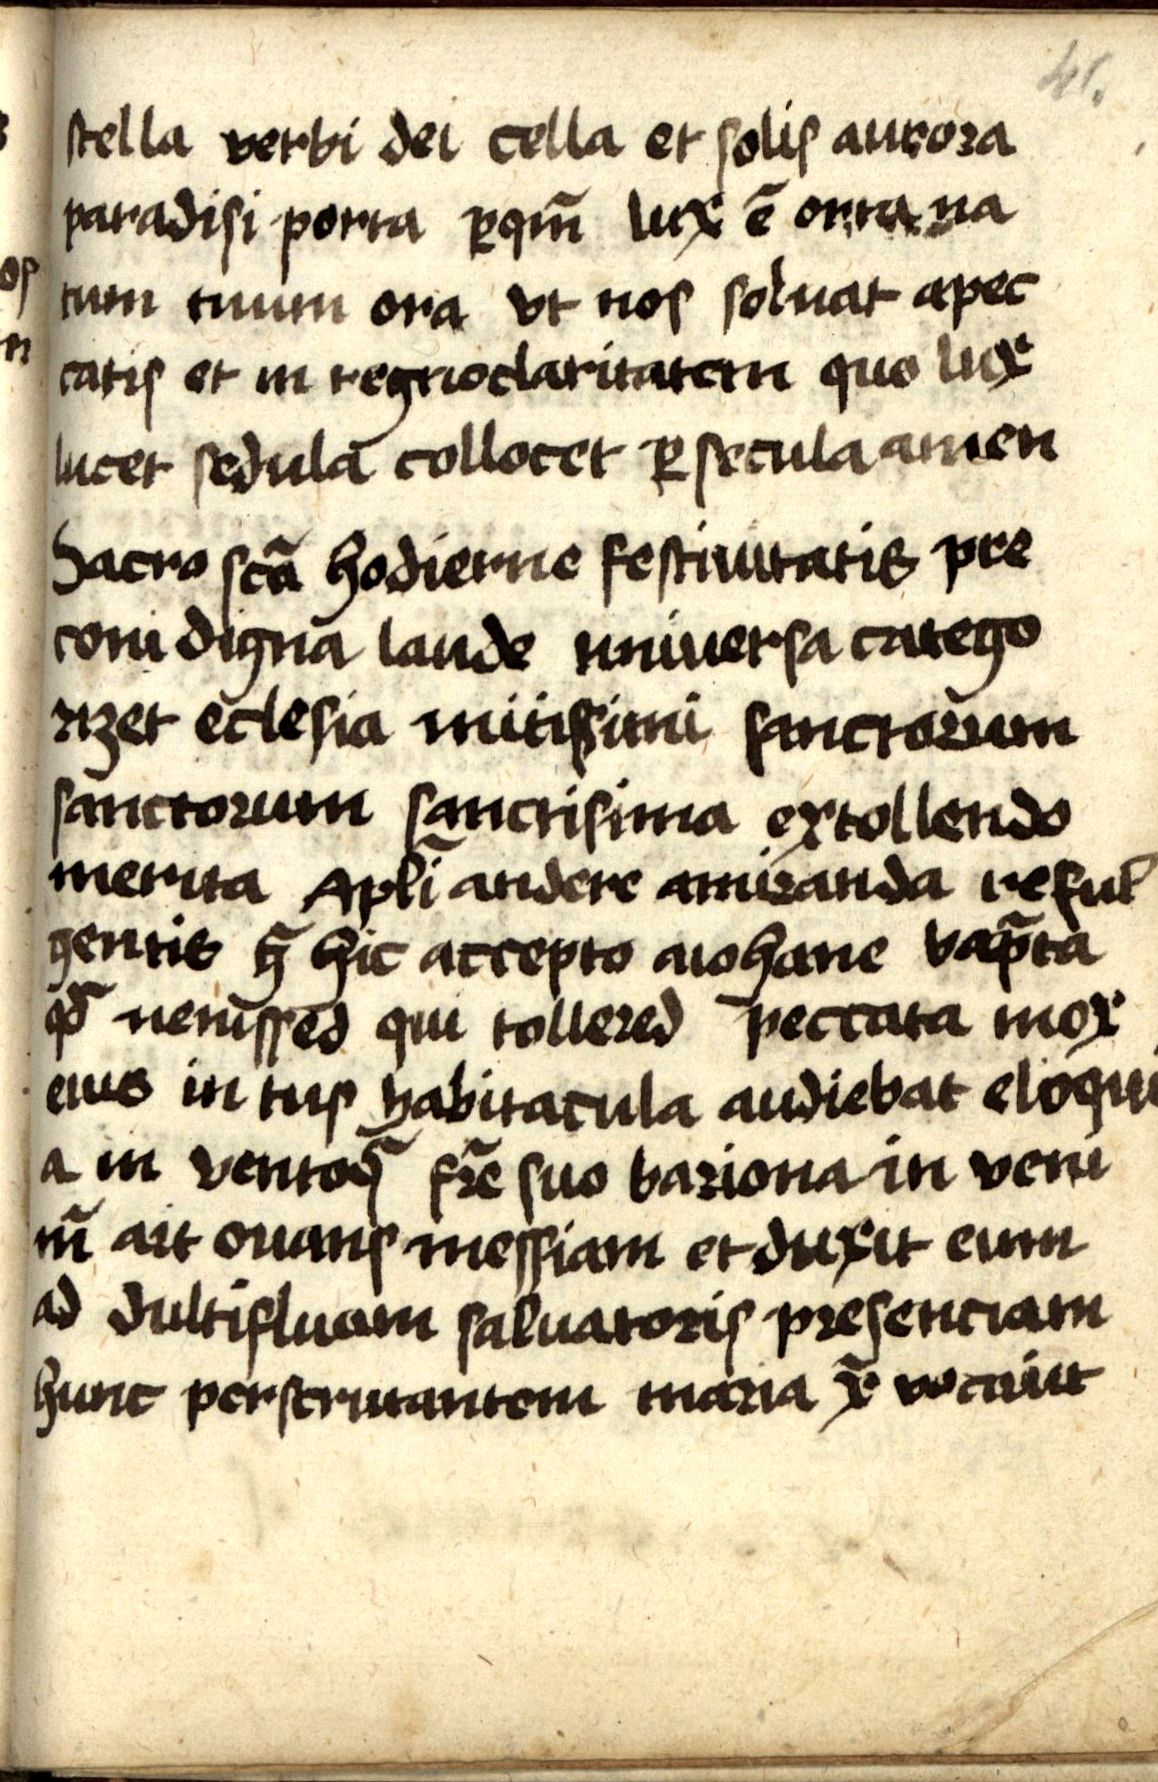 41.
stella verbi dei cella et solis aurora
paradisi porta ꝑqm̄ lux ē orta na
tum tuum ora vt nos soluat apec
catis et in regnoclaritatem quo lux
lucet sedula collocet ꝑ secula amen
Sacro scā hodierne festiuitatis pre
coni digna laude uniuersa catego
rizet eclesia mitissimi sanctorum
sanctorum sanctisima extollendo
merita apl̄i andere amiranda reful
gentis hic accepto aiohane bap̄ta
qd̄ uenissed qui tollered peccata mox
eius in tus habitacula audiebat eloqui
a in ventoq̄ fr̄e suo bariona in veni
m̄ ait ouans messiam et duxit eum
ad dultifluam saluatoris presenciam
hunc perscrutantem maria xp̄e vocauit